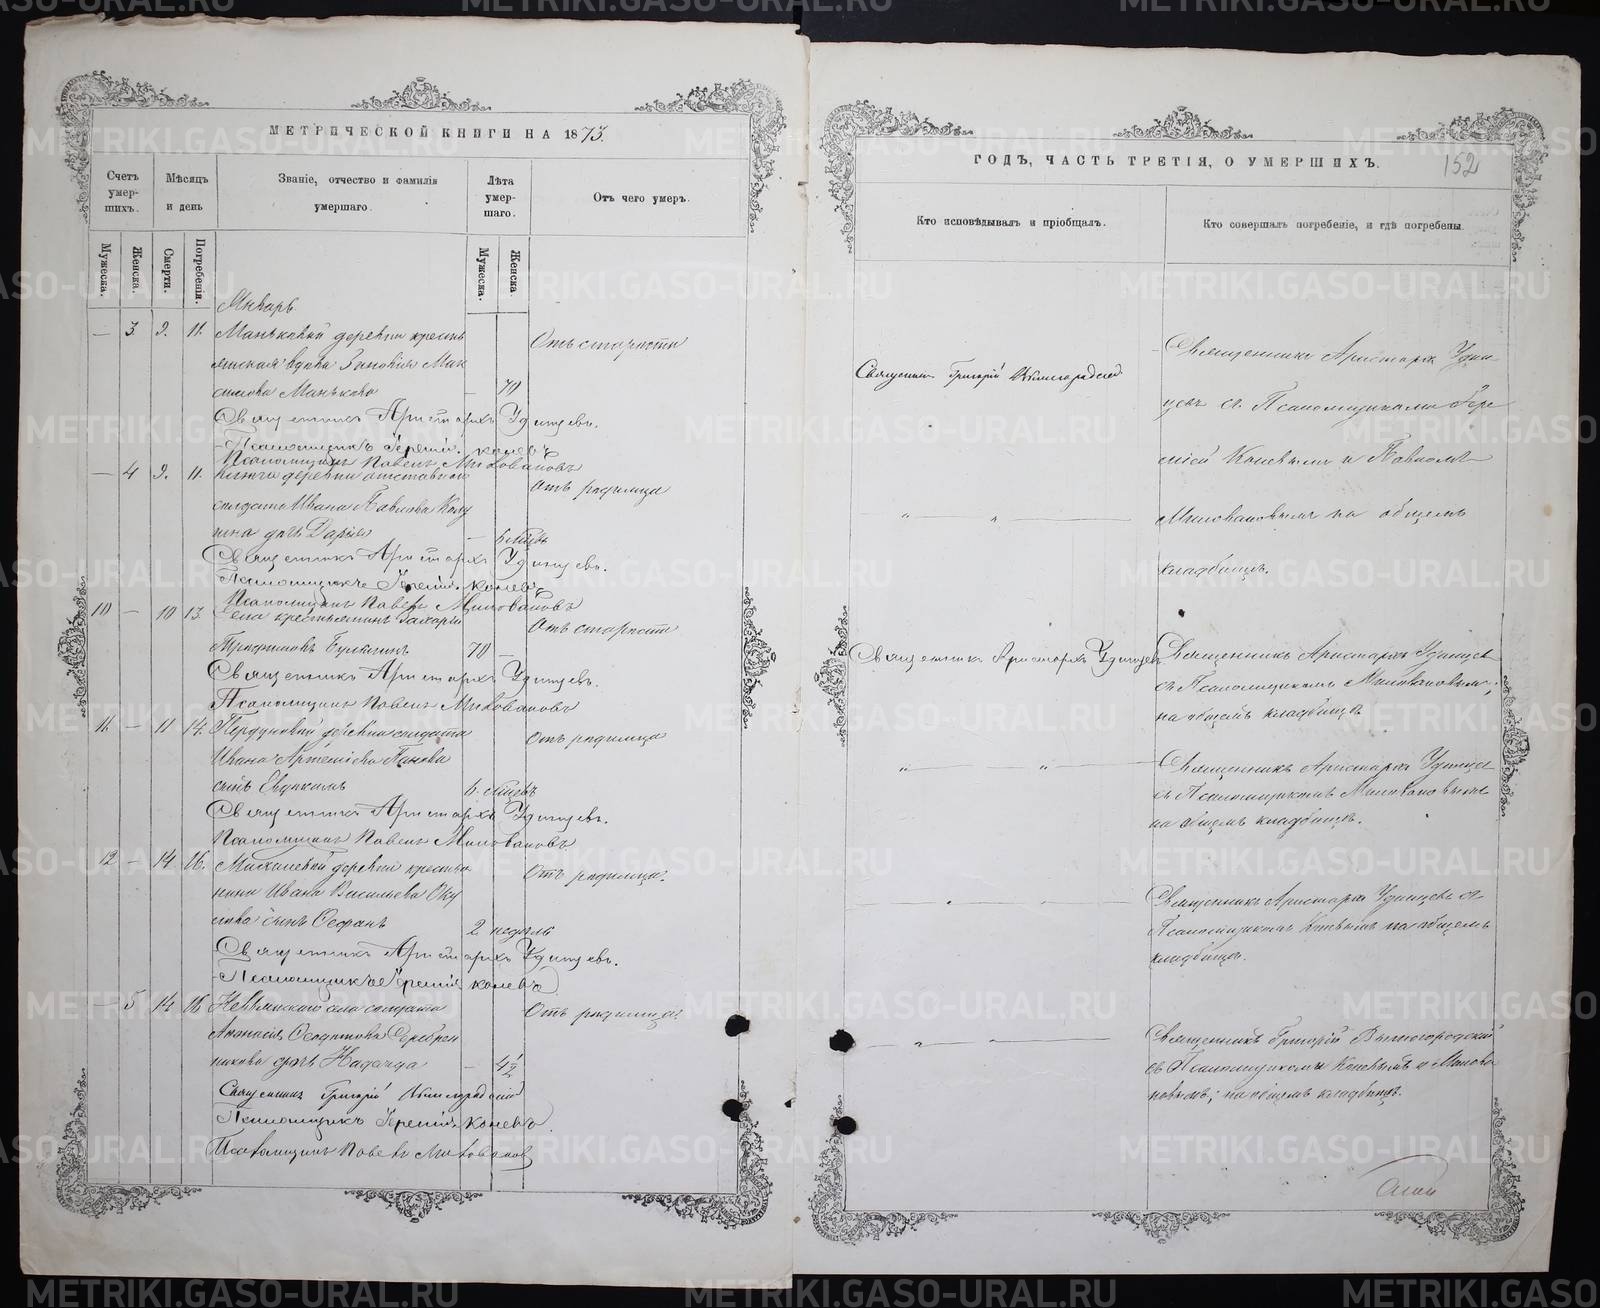 МЕТРИЧЕСКОЙ КНИГИ НА 1873.
Счетъ умер-шихъ.
Мѣсяцъ и день
Званіе, отчество и фамилія умершаго.
Лѣта умер-шаго.
Отъ чего умеръ.
Мужеска.
Женска.
Смерти.
Погребенія.
Мужеска.
Женска.
Январь.
— 3. 9. 11. деревни кресть
янская вдова Зиновія Мак
симова Манькова — 70
Отъ старости
Священникъ Аристархъ Удинцевъ.
Псаломщикъ Іеремій Коневъ
Псаломщикъ Павелъ Миловановъ
— 4 9. 11. деревни отставнаго
солдата Ивана Павлова
дочь Дарія —
Отъ родимца
Священникъ Аристархъ Удинцевъ.
Псаломщикъ Іеремій Коневъ
Псаломщикъ Павелъ Миловановъ
10 — 10 13. Села крестьянинъ Захарій
Трофимовъ 70 —
Отъ старости
Священникъ Аристархъ Удинцевъ.
Псаломщикъ Павелъ Миловановъ
11. — 11 14. деревни солдата
Ивана Артеміева Панова
сынъ 6.
Отъ родимца
Священникъ Аристархъ Удинцевъ.
Псаломщикъ Павелъ Миловановъ.
12 — 14 16. деревни крестья
нина Ивана Васильева Оку
лова сынъ 2 недѣль
Отъ родимца.
Священникъ Аристархъ Удинцевъ.
Псаломщикъ Іеремій Коневъ
— 5 14 16 Невьянскаго села солдата
Афанасія Серебрен
никова дочь Надежда — 4½
Отъ родимца.
Священникъ Григорій
Псаломщикъ Іеремій Коневъ.
Псаломщикъ Павелъ Миловановъ
ГОДЪ, ЧАСТЬ ТРЕТІЯ, О УМЕРШИХЪ.
152
Кто исповѣдывалъ и пріобщалъ.
Кто совершалъ погребеніе, и гдѣ погребены.
Священникъ Григорій
Священникъ Аристархъ Удин
цевъ съ Псаломщиками Іере
міей Коневымъ и Павломъ
Миловановымъ на общемъ
кладбищѣ.
Священникъ Аристархъ Удинцевъ
Священникъ Аристархъ Удинцев
съ Псаломщикомъ Миловановымъ;
на общемъ кладбищѣ
Священникъ Аристархъ Удинцев
съ Псаломщикомъ Миловановымъ
на общемъ кладбищѣ.
Священникъ Аристархъ Удинцевъ съ
Псаломщикомъ Коневымъ на общемъ
кладбищѣ.
Священникъ Григорій Вышегородский
съ Псаломщиками Коневымъ и Милова
новымъ; на общемъ кладбищѣ.
METRIKI.GASO-URAL.RU